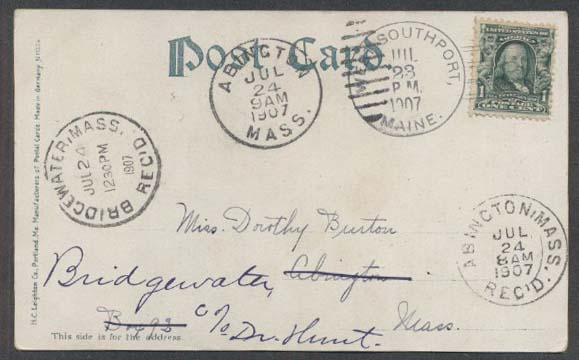 Post Card.
ABINGTON
JUL
24
9AM
1907
MASS.
SOUTHPORT,
JUL
23
P.M.
1907
MAINE.
1
BRIDGEWATER, MASS.
JUL 24
1230PM
1907
REC'D
H.C. Leighton Co., Portland, Me. Manufacturers of Postal Cards. Made in Germany
ABINGTON, MASS.
JUL
24
8AM
1907
REC'D.
Miss. Dorothy Burton
Bridgewater, Abington
c/o Dr. Hunt. Mass.
This side is for the address.